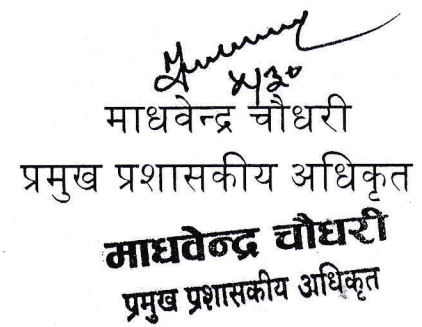 ४/३०
माधवेन्द्र चौधरी
प्रमुख प्रशासकीय अधिकृत
माधवेन्द्र चौधरी
प्रमुख प्रशासकीय अधिकृत